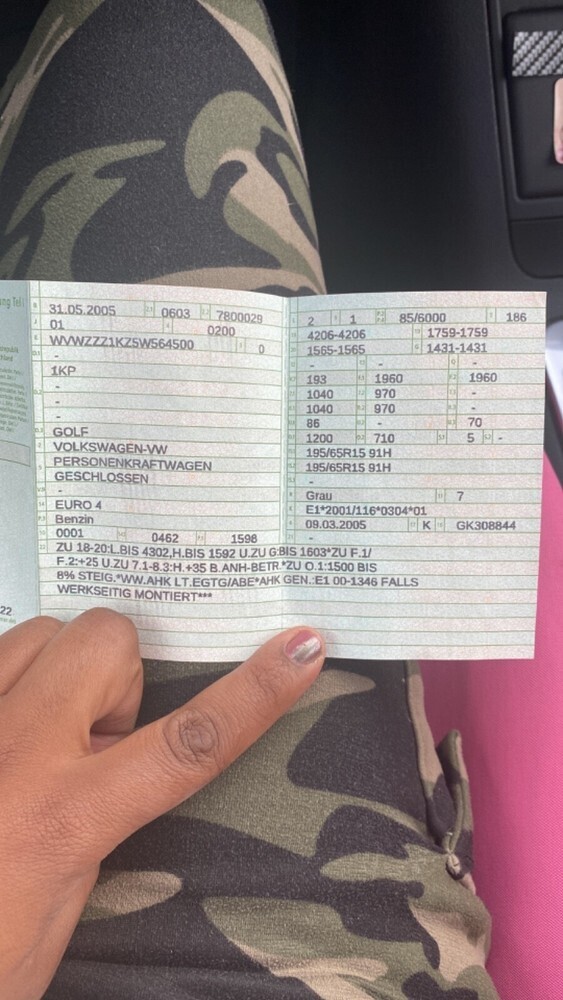 ung Teil
31.05.2005 0603 7800029
01 0200
WVWZZZ1KZ5W564500 0
-
1KP
-
-
-
GOLF
VOLKSWAGEN-VW
PERSONENKRAFTWAGEN
GESCHLOSSEN
-
EURO 4
Benzin
0001 0462 1598
2 1 85/6000 186
4206-4206 1759-1759
1565-1565 1431-1431
- - -
193 1960 1960
1040 970 -
1040 970 -
86 - 70
1200 710 5 -
195/65R15 91H
195/65R15 91H
-
Grau 7
E1*2001/116*0304*01
09.03.2005 K GK308844
-
ZU 18-20:L.BIS 4302,H.BIS 1592 U.ZU G:BIS 1603*ZU F.1/
F.2:+25 U.ZU 7.1-8.3:H.+35 B.ANH-BETR.*ZU O.1:1500 BIS
8% STEIG.*WW.AHK LT.EGTG/ABE*AHK GEN.:E1 00-1346 FALLS
WERKSEITIG MONTIERT***
22